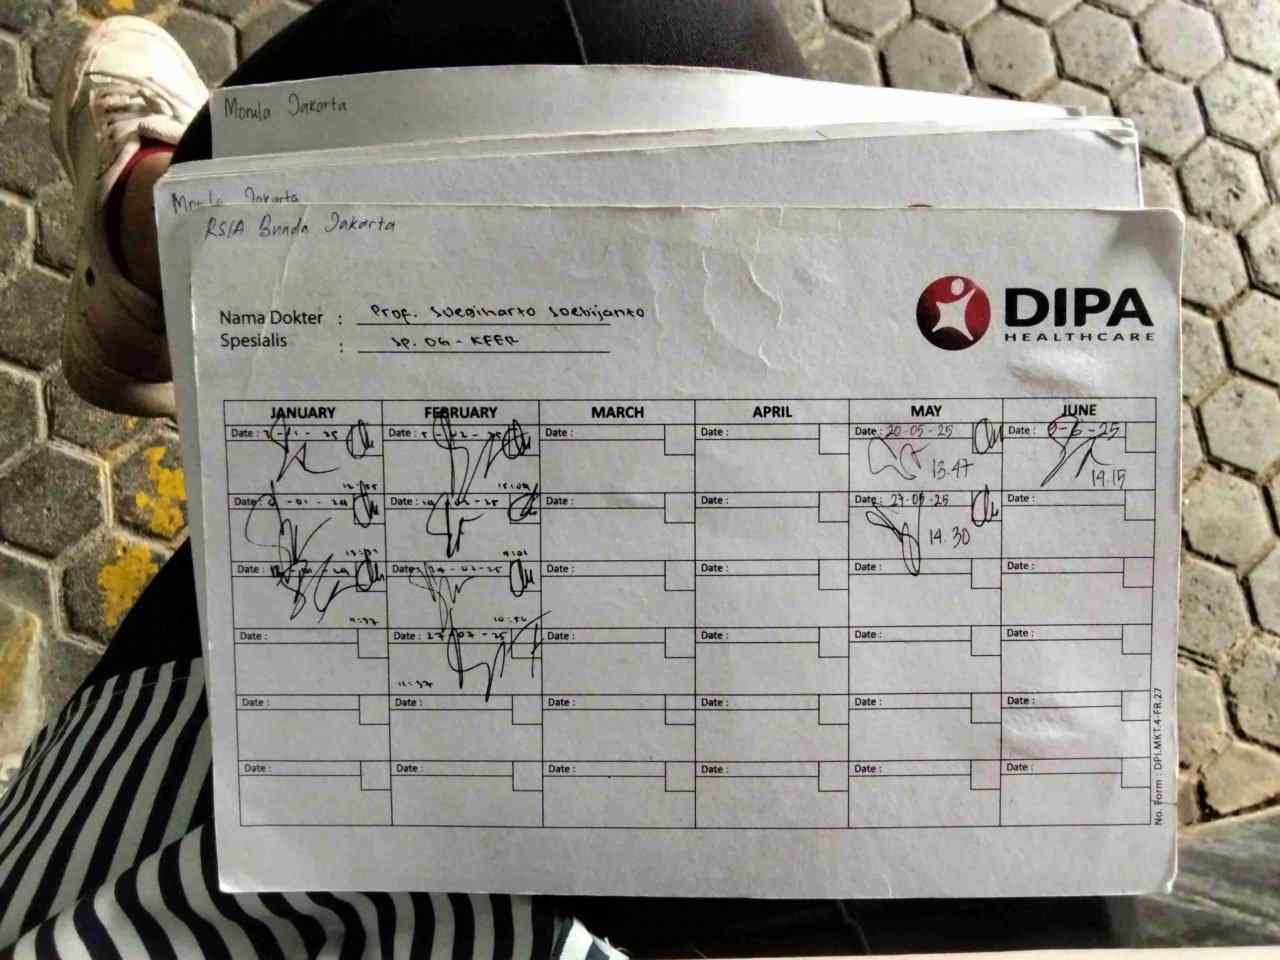 Morula Jakarta
Jakarta
RSIA Bunda Jakarta
DIPA
HEALTHCARE
Nama Dokter : Prof. Soegiharto Soebijanto
Spesialis : Sp. OG - KFER
JANUARY FEBRUARY MARCH APRIL MAY JUNE
Date : Date : Date : Date : Date : 20-05-25 Date :
13.47 14.15
Date : Date : Date : Date : Date : 27-05-25 Date :
14.30
Date : Date : Date : Date : Date : Date :
Date : Date : Date : Date : Date : Date :
Date : Date : Date : Date : Date : Date :
Date : Date : Date : Date : Date : Date :
No. Form : DPI.MKT.4-FR.27